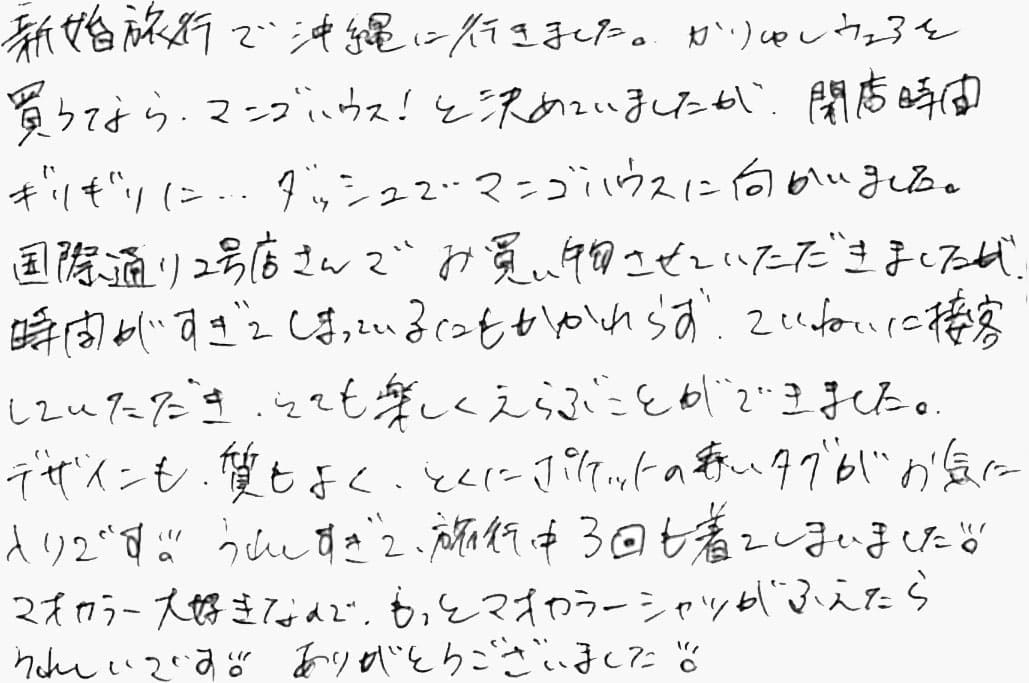 新婚旅行で沖縄に行きました。かりゆしウェアを
買うなら、マンゴハウス!と決めていましたが、閉店時間
ギリギリに… ダッシュでマンゴハウスに向かいました。
国際通り2号店さんでお買い物させていただきましたが、
時間がすぎてしまっているにもかかわらず、ていねいに接客
していただき、とても楽しくえらぶことができました。
デザインも、質もよく、とくにポケットの赤いタグがお気に
入りです!! うれしすぎて、旅行中3回も着てしまいました!!
マオカラー大好きなので、もっとマオカラーシャツがふえたら
うれしいです!! ありがとうございました!!